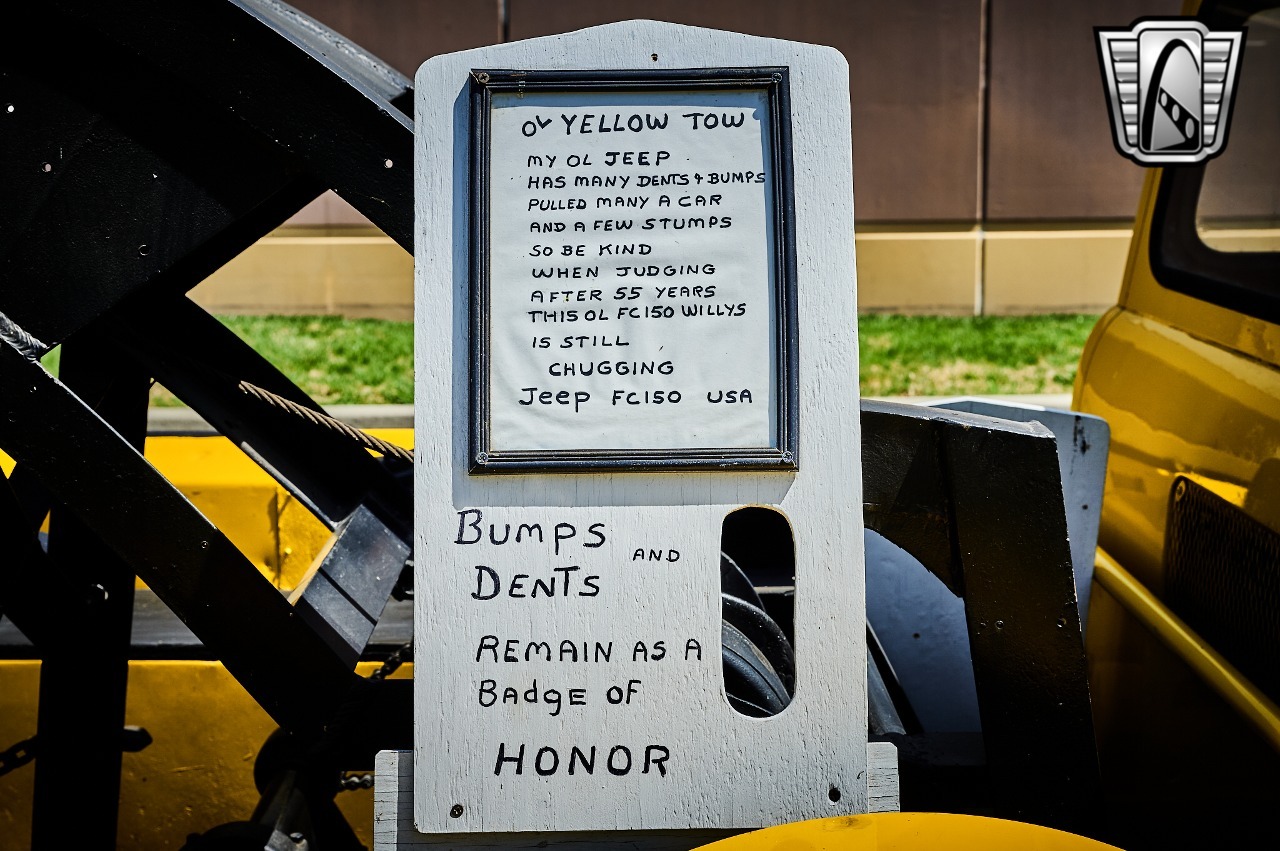 OL YELLOW TOW
MY OL JEEP
HAS MANY DENTS & BUMPS
PULLED MANY A CAR
AND A FEW STUMPS
SO BE KIND
WHEN JUDGING
AFTER 55 YEARS
THIS OL FC150 WILLYS
IS STILL
CHUGGING
Jeep FC150 USA
BUMPS AND
DENTS
REMAIN AS A
BadgE OF
HONOR